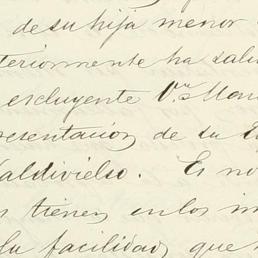 de su hija menor
teriormente ha salu
escluyente V.n Man
presentacion de su
Valdivielso. Es no
s tienen en los in
la facilidad que